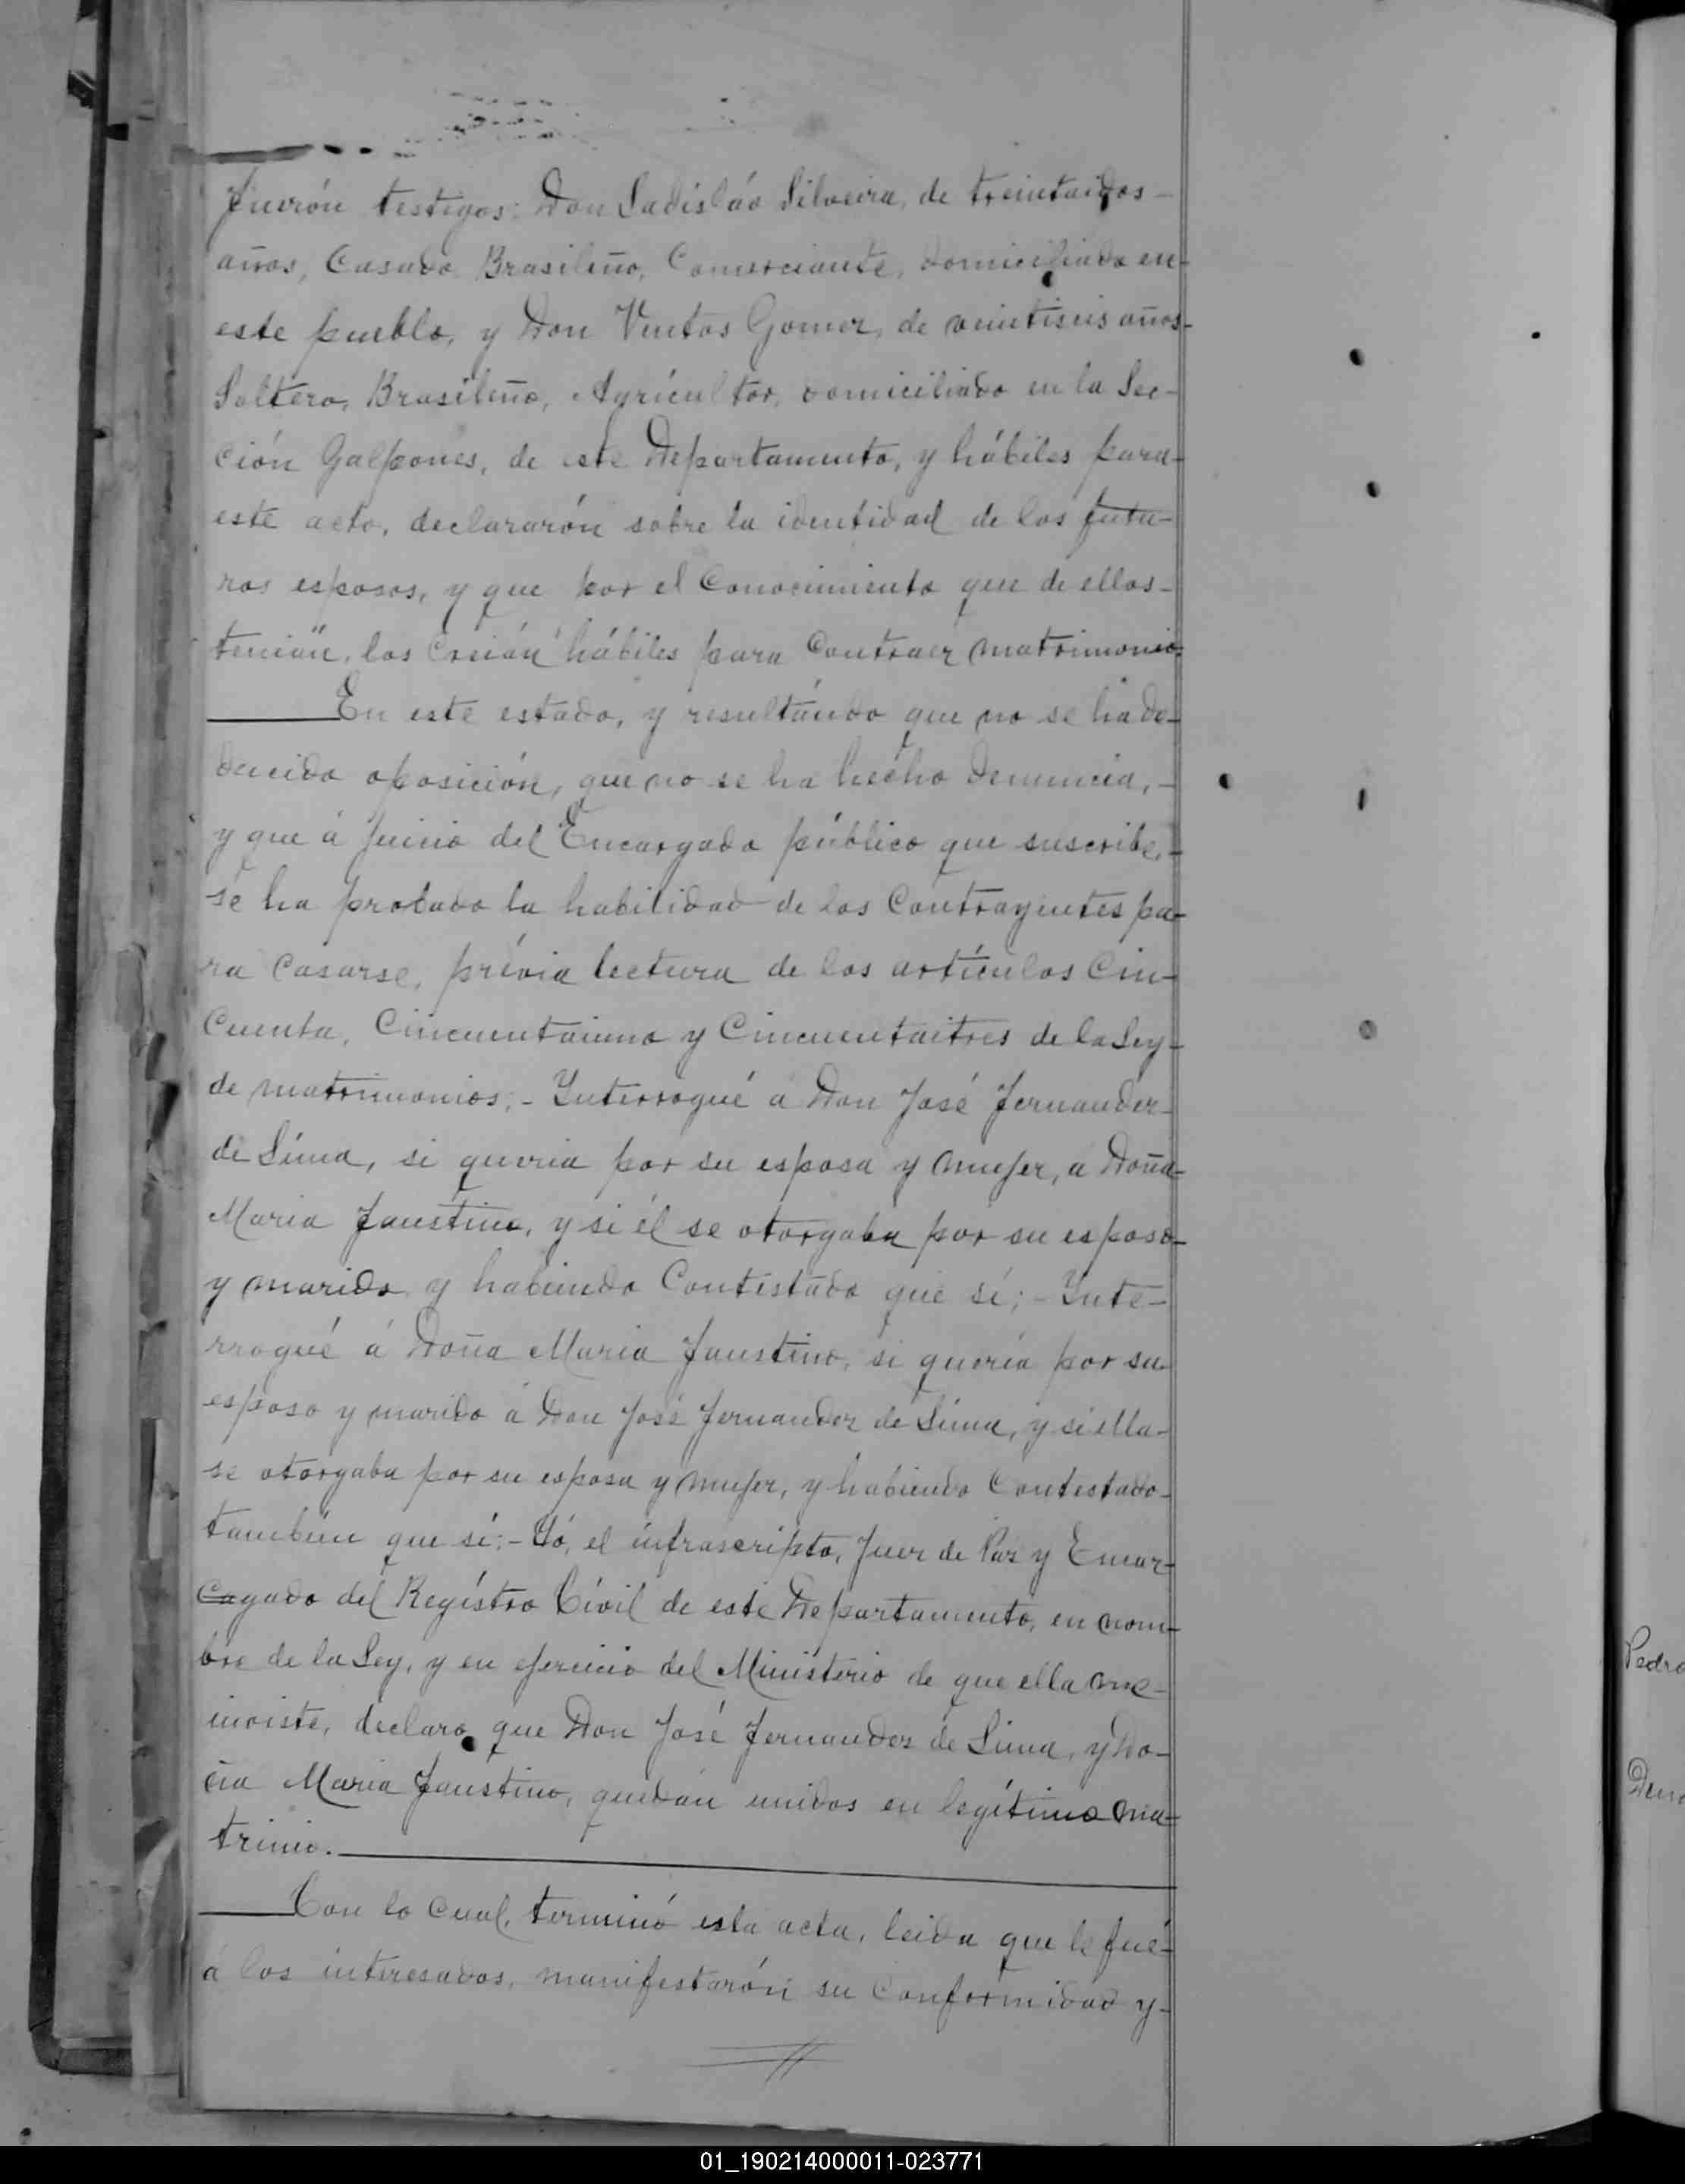 Fuerón testigos: Don Ladisláo Silveira, de treintaidos-
años, Casado, Brasileño, Comerciante, domiciliado en-
este pueblo, y Don Ventos Gomez, de veintiseis años-
Soltero, Brasileño, Agrícultor, domiciliado en la Sec-
ción Galpones, de este Departamento, y hábiles para-
este acto, declararón sobre la identidad de los futu-
ros esposos, y que por el Conocimiento que de ellos-
tenián, los Creián hábiles para Contraer matrimonio.
En este estado, y resultándo que no se ha de-
ducido oposición, que no se ha hecho denuncia,-
y que á juicio del Encargado público que suscribe,-
se ha probado la habilidad de los Contrayentes pa-
ra Casarse, prévia lectura de los artículos Cin-
Cuenta, Cincuentaiuno y Cincuentaitres de la Ley-
de matrimonios;- Interrogué á Don José Fernandez-
de Lima, si queria por su esposa y mujer, a Doña-
Maria Faustino, y si él se otorgaba por su esposo-
y marido y habiendo Contestado que sí;- Inte-
rrogué á Doña Maria Faustino, si queria por su
esposo y marido á Don José Fernandez de Lima, y si ella-
se otorgaba por su esposa y mujer, y habiendo Contestado-
tambien que sí;- Yó, el infrascripto, Juez de Paz y Encar-
cagado del Regístro Cívil de este Departamento, en nom-
bre de la Ley, y en ejercicio del Ministerio de que ella me-
inviste, declaro que Don José Fernandez de Lima, y Do-
ña Maria Faustino, quedán unidos en legítimo ma-
trinio.
Con lo Cual, terminó esta acta, leida que le fué-
á los interesados, manifestarón su Conformidad y-
Pedro
01_190214000011-023771